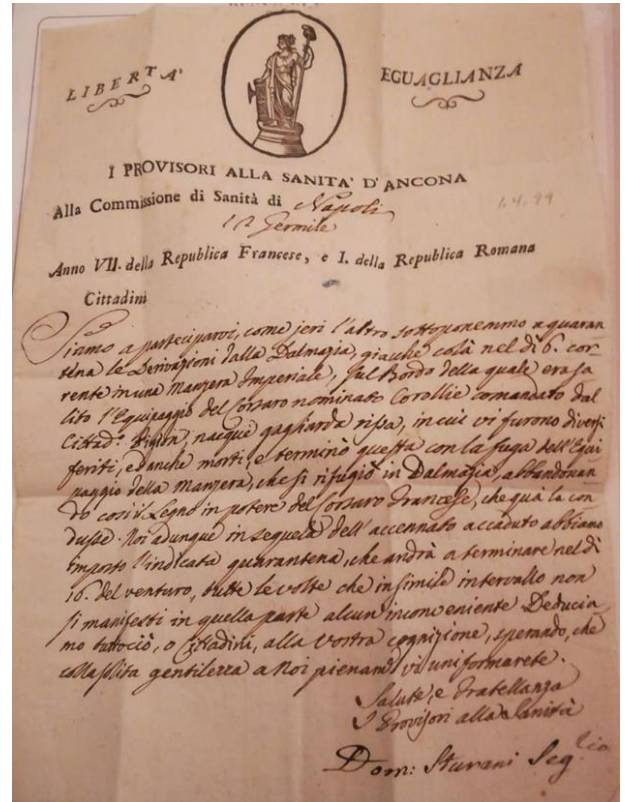 LIBERTA'
EGUAGLIANZA
I PROVISORI ALLA SANITA' D'ANCONA
Alla Commissione di Sanità di Napoli
12 Germile
1.4.99
Anno VII. della Republica Francese, e I. della Republica Romana
Cittadini
Siamo a parteciparvi, come jeri l'altro sottoponemmo a quaran
tena le Derivazioni dalla Dalmazia, giacche colà nel dì 6. cor-
rente in una Manzera Imperiale, sul Bordo della quale era sa
lito l'Equipaggio del Corsaro nominato Corollie comandato dal
Cittad.e nacque gagliarda rissa, in cui vi furono diversi
feriti, ed anche morti, e terminò questa con la fuga dell'Equi
paggio della Manzera, che si rifugiò in Dalmazia, abbandonan
do così il Legno in potere del Corsaro Francese, che quà la con
dusse. Noi adunque in sequela dell'accennato accaduto abbiamo
imposto l'indicata quarantena, che andrà a terminare nel dì
16. del venturo, tutte le volte che in simile intervallo non
si manifesti in quella parte alcun inconveniente Deducia
mo tuttociò, o Cittadini, alla vostra cognizione, sperando, che
colla solita gentilezza a Noi vi uniformarete.
Salute, e Fratellanza
I Provisori alla Sanità
Dom: Sturani Seg.rio